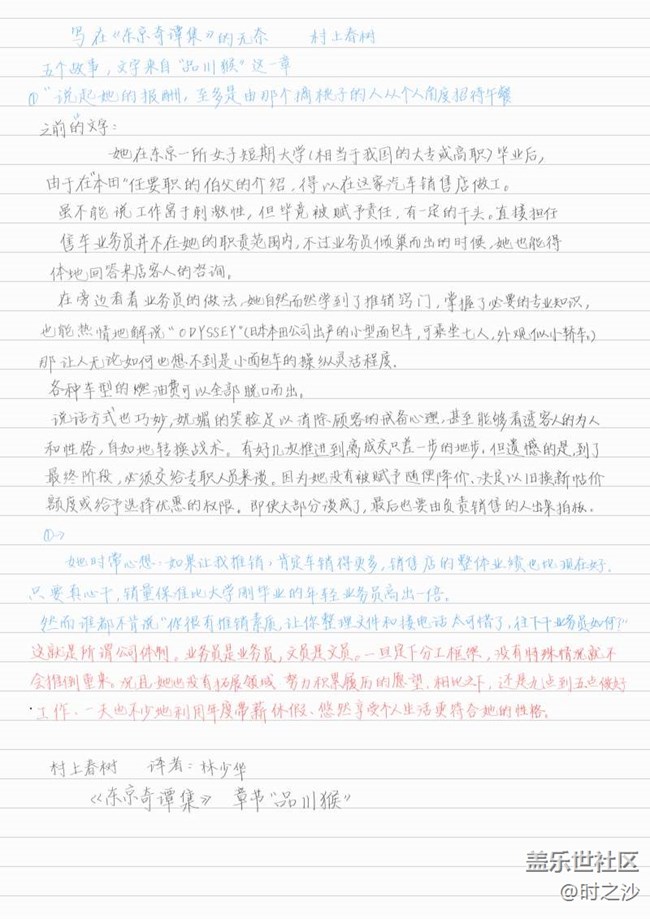 写在《东京奇谭集》的无奈 村上春树
五个故事，文字来自"品川猴"这一章
①"说起她的报酬，至多是由那个摘桃子的人从个人角度招待午餐
之前的文字：
她在东京一所女子短期大学(相当于我国的大专或高职)毕业后，
由于在"本田"任要职的伯父的介绍，得以在这家汽车销售店做工。
虽不能说工作富于刺激性，但毕竟被赋予责任，有一定的干头。直接担任
售车业务员并不在她的职责范围内，不过业务员倾巢而出的时候，她也能得
体地回答来店客人的咨询。
在旁边看着业务员的做法，她自然而然学到了推销窍门，掌握了必要的专业知识，
也能热情地解说"ODYSSEY"(日本本田公司出产的小型面包车，可乘坐七人，外观似小轿车。)
那让人无论如何也想不到是小面包车的操纵灵活程度.
各种车型的燃油费可以全部脱口而出。
说话方式也巧妙，妩媚的笑脸足以消除顾客的戒备心理，甚至能够看透客人的为人
和性格，自如地转换战术。有好几次推进到离成交只差一步的地步，但遗憾的是，到了
最终阶段，必须交给专职人员来谈。因为她没有被赋予随便降价、决定以旧换新帖价
额度或给予选择优惠的权限。即使大部分谈成了，最后也要由负责销售的人出来拍板.
①→
她时常心想：如果让我推销，肯定车销得更多，销售店的整体业绩也比现在好.
只要真心干，销量保准比大学刚毕业的年轻业务员高出一倍。
然而谁都不肯说"你很有推销素质，让你整理文件和接电话太可惜了，往下干业务员如何?"
这就是所谓公司体制。业务员是业务员，文员是文员。一旦定下分工框架，没有特殊情况就不
会推倒重来。况且她也没有拓展领域 努力积累履历的愿望、相比之下，还是九点到五点做好
工作、一天也不少地利用年度带薪休假、悠然享受个人生活更符合她的性格。
村上春树 译者：林少华
《东京奇谭集》 章节"品川猴"
盖乐世社区
@时之沙